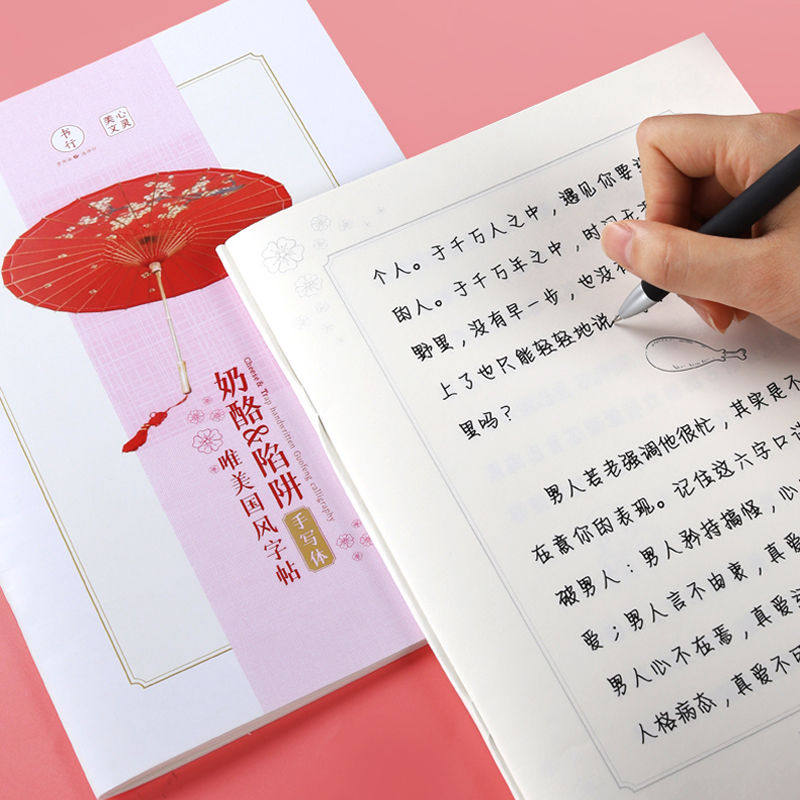 书行
心灵
美文
奶酪&陷阱
唯美国风字帖
手写体
个人。于千万人之中，遇见你要
的人。于千万年之中，时间
野里，没有早一步，也没有
上了也只能轻轻地说
里吗？
男人若老强调他很忙，其实是不
在意你的表现。记住这六字口
破男人：男人矜持搞怪，心
爱；男人言不由衷，真爱
男人心不在焉，真爱
人格病态，真爱不